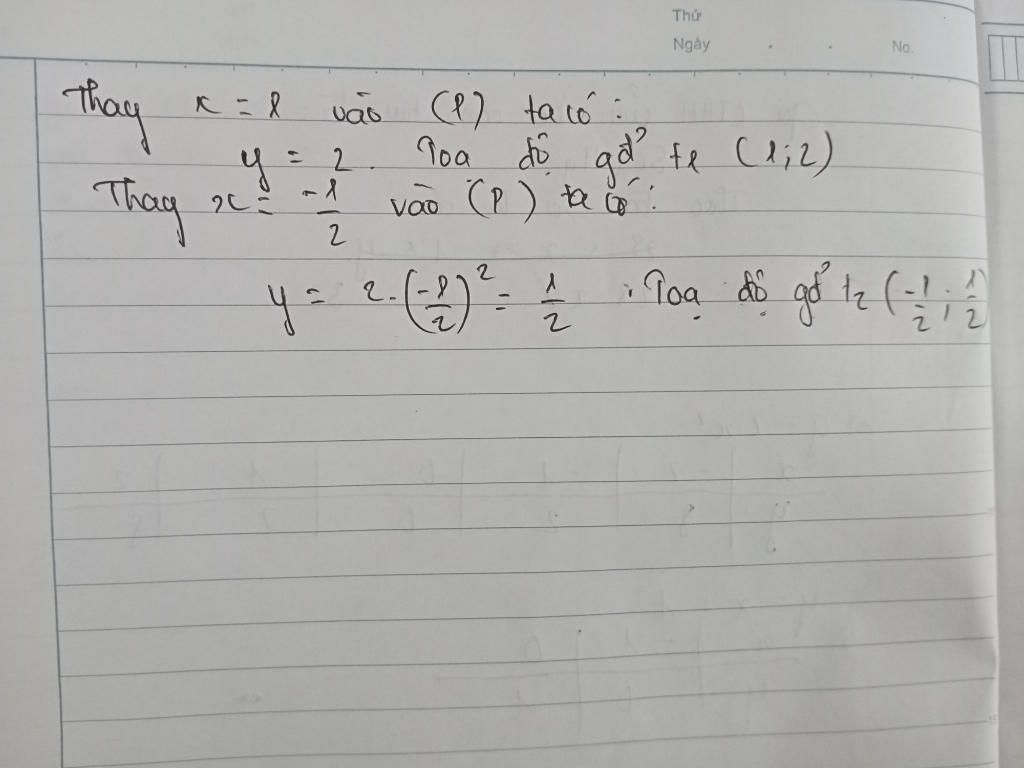 Thứ
Ngày . . No.
Thay x = 1 vào (P) ta có :
y = 2. Toạ độ gđ² t1 (1;2)
Thay x = -1/2 vào (P) ta có :
y = 2.(-1/2)² = 1/2 . Toạ độ gđ² t2 (-1/2 ; 1/2)